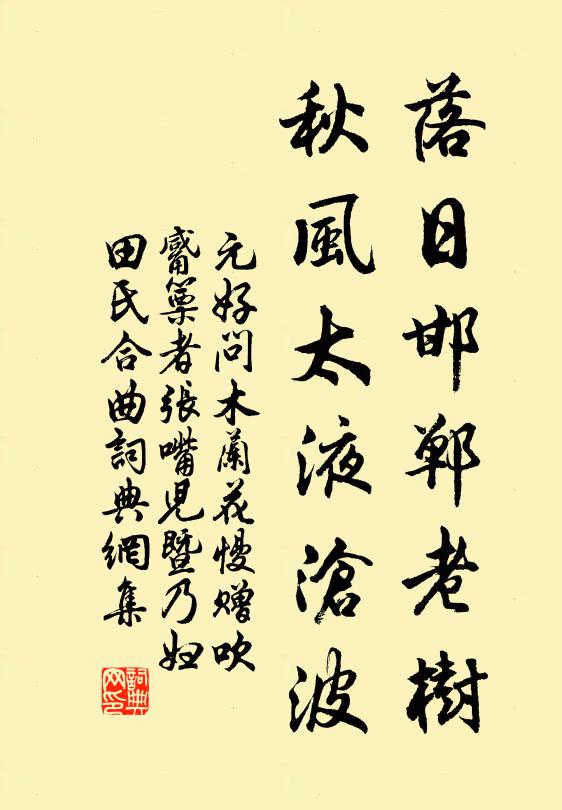 落日邯鄲老樹
秋風太液滄波
元好問木蘭花慢贈吹
觱篥者張嘴兒暨乃婦
田氏合曲詞典網集
詞典
网印